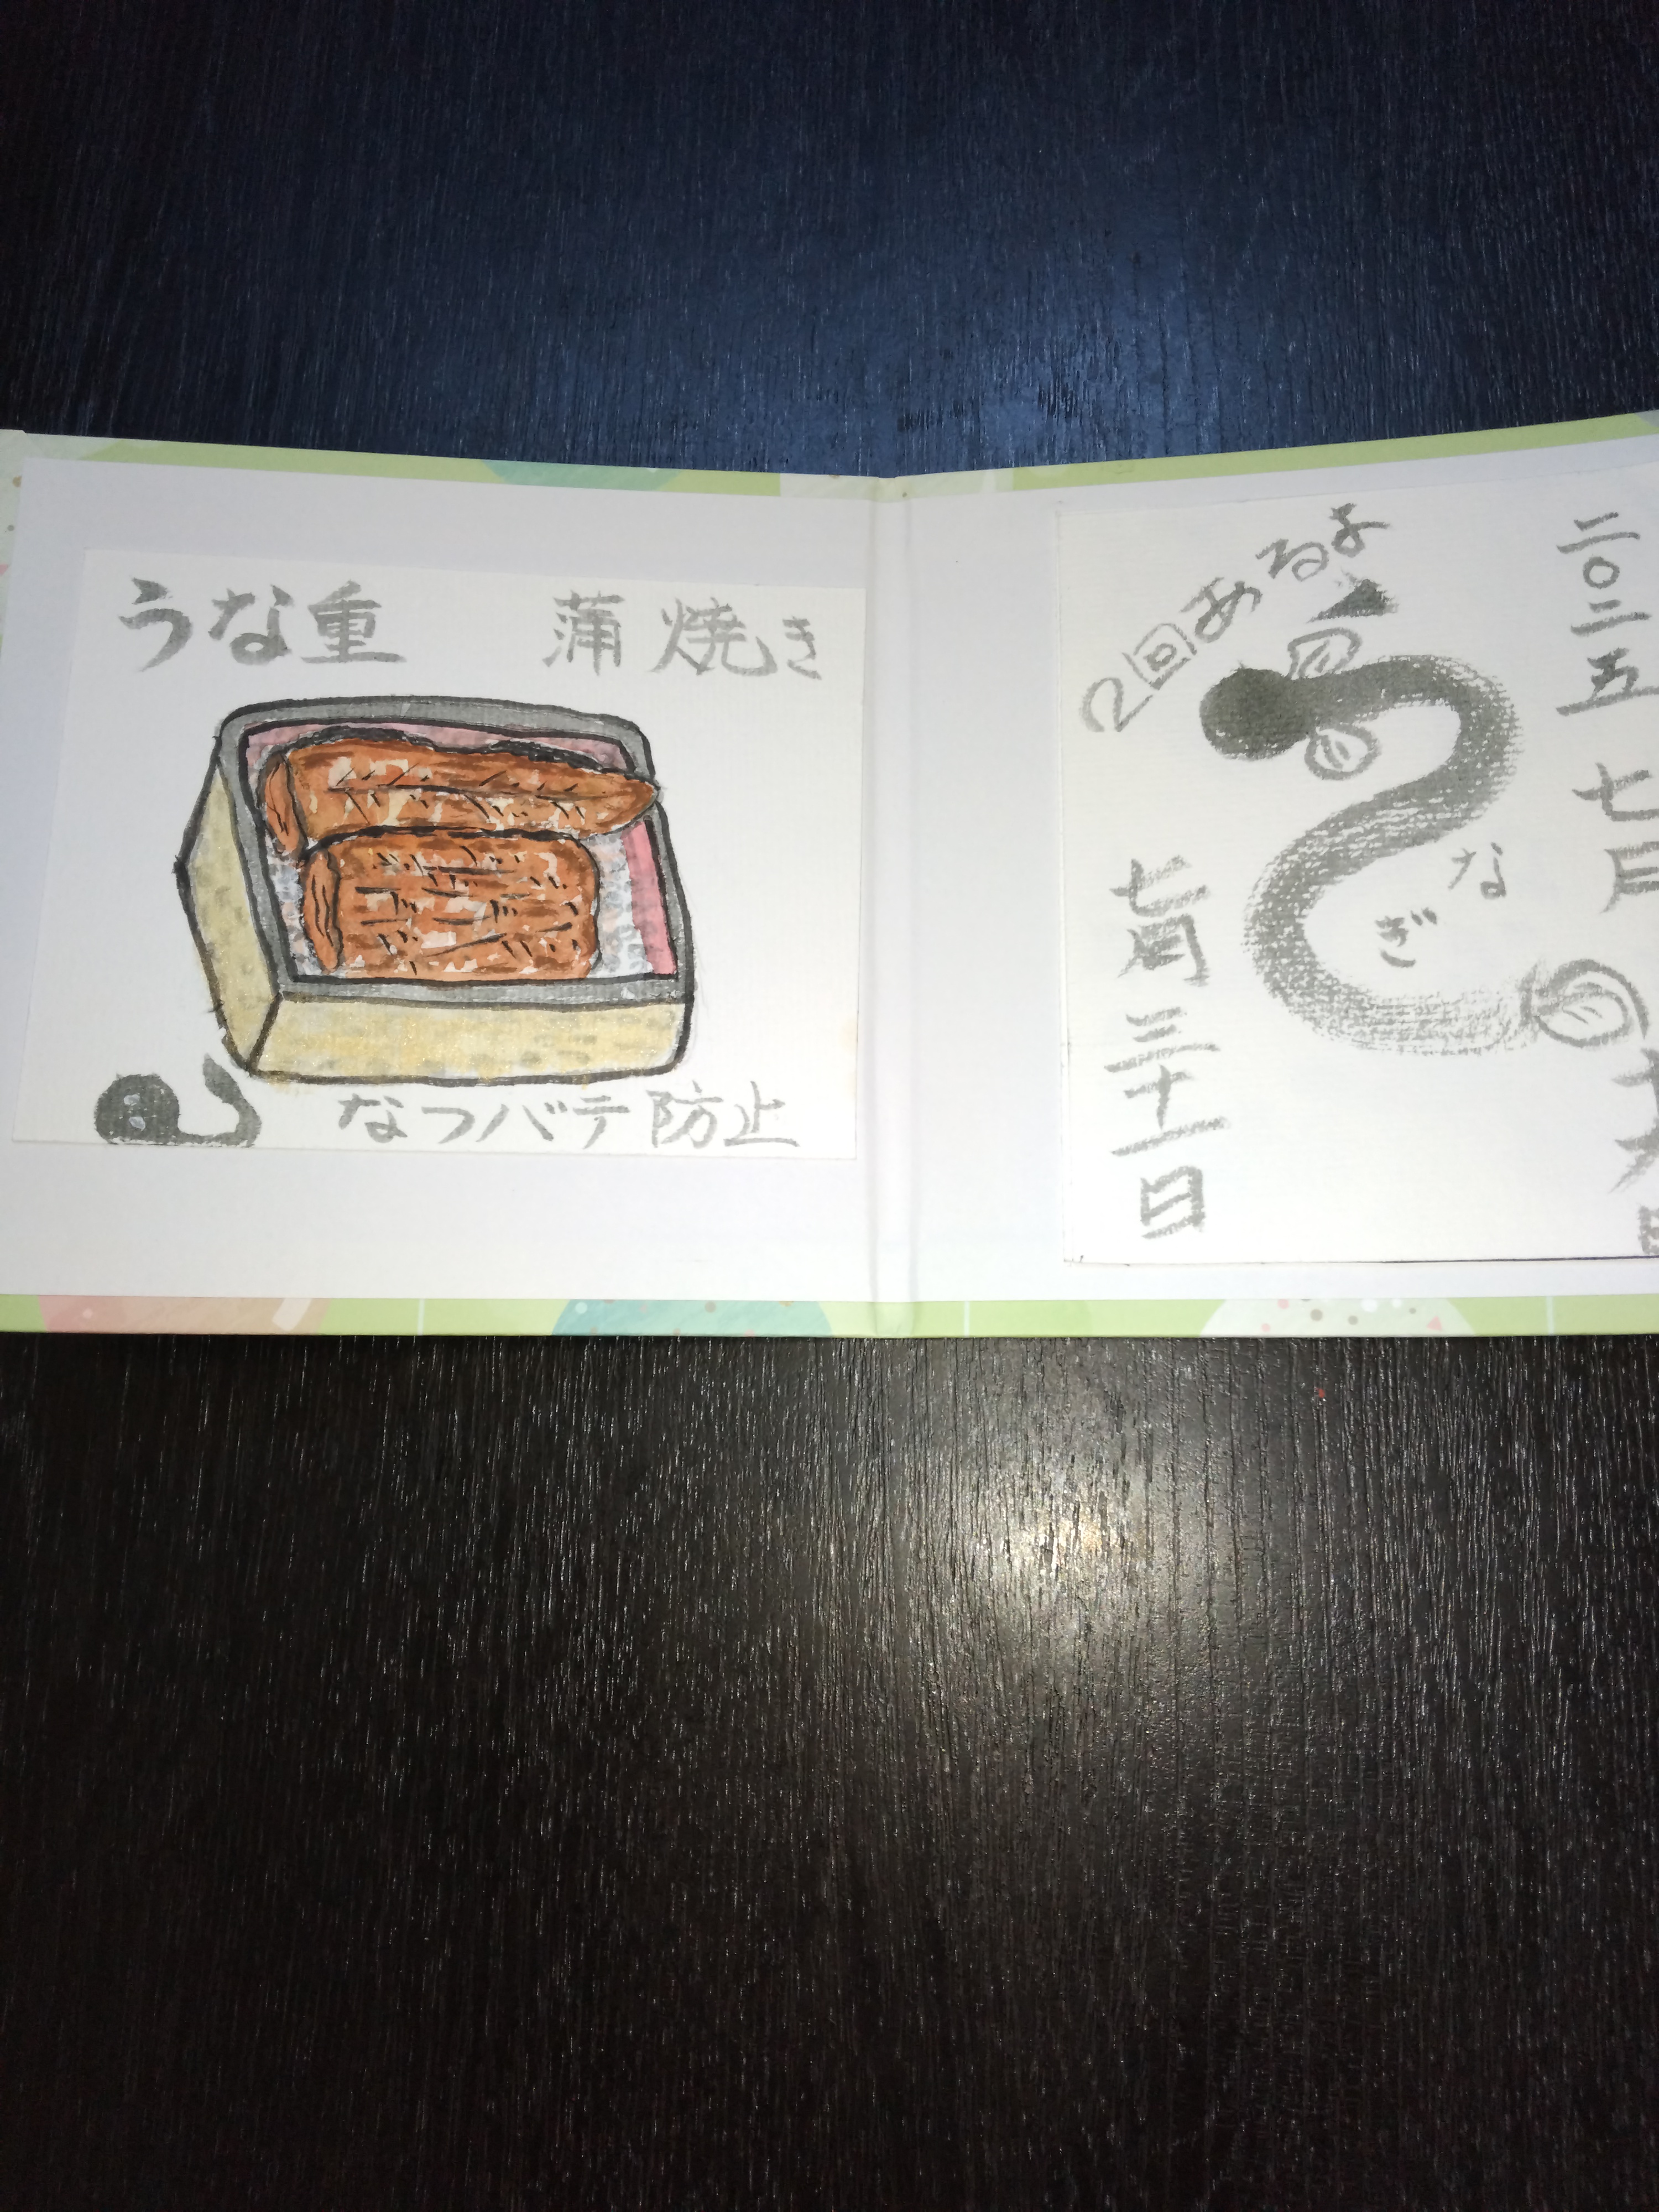 うな重 蒲焼き
なつバテ防止
2回あるよ
二〇二五 七月
なぎ
七月三十一日